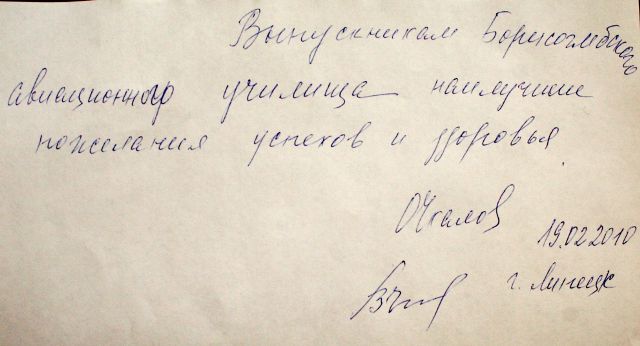 Выпускникам Борисоглебского
авиационного училища наилучшие
пожелания успехов и здоровья
Чкалов
19.02.2010
г. Липецк